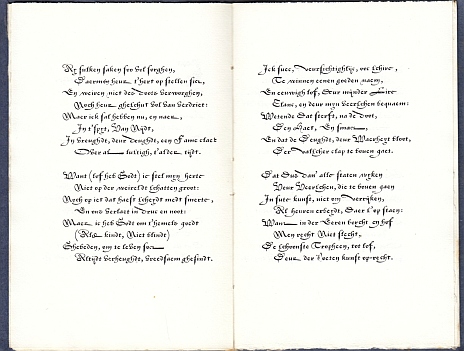 Ry sulken saken soo vol sorghen,
Daermen heur t'hert op stellen siet,
En weiren niet des Doots verworghen,
Noch heur ghelchut vol van verdriet:
Maer ick sal hebben nu, en naer,
In t'spyt, Van Nydt,
In vreughdt, deur Deughdt, een Fame claer
Over al lustigh, t'alder tydt.
Want (lof heb Godt) ic stel myn herte
Niet op der weireldt schatten groot:
Noch op iet dat haest scherdt medt smerte,
En ons verlaet in druc en noot:
Maer ic heb Godt om themels goedt
(Als kindt, Niet blindt)
Ghebeden, om te leven soet
Altydt verheughdt, vreedsaem ghesindt.
Ick suec, voorsichtighlyc, oec schier,
Te winnen eenen goeden naem,
En eeuwigh lof, deur mynder Lier
Clanc, en deur myn veerschen bequaem:
Wetende dat sterft, na de doot,
Den Haet, En smaet,
En dat de Deughdt, deur Waerheyt bloot,
Der valscher clap te boven gaet.
Dat dus dan alle staten wyken
Voor veerschen, die te boven gaen
In sulc kunst, niet om verryken,
Al heuren arbeydt, daer t'op staen:
Want in der Heren bercht en hof
Men vecht Niet slecht,
De schoonste Tropheen, tot lof,
Deur der Poeten kunst op-recht.